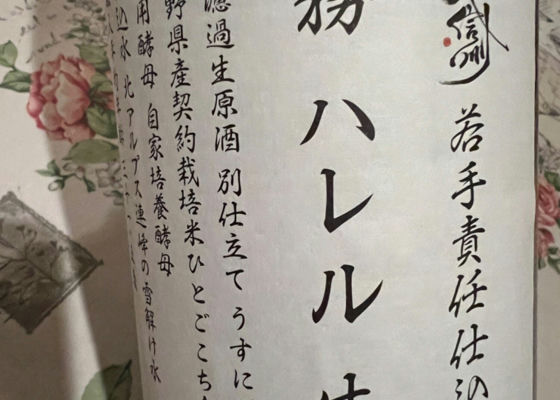 信州
若手責任仕込
務 ハレル 仕
濾過生原酒 別仕立て うすに
野県産契約栽培米ひとごこち
用酵母 自家培養酵母
込水 北アルプス連峰の雪解け水